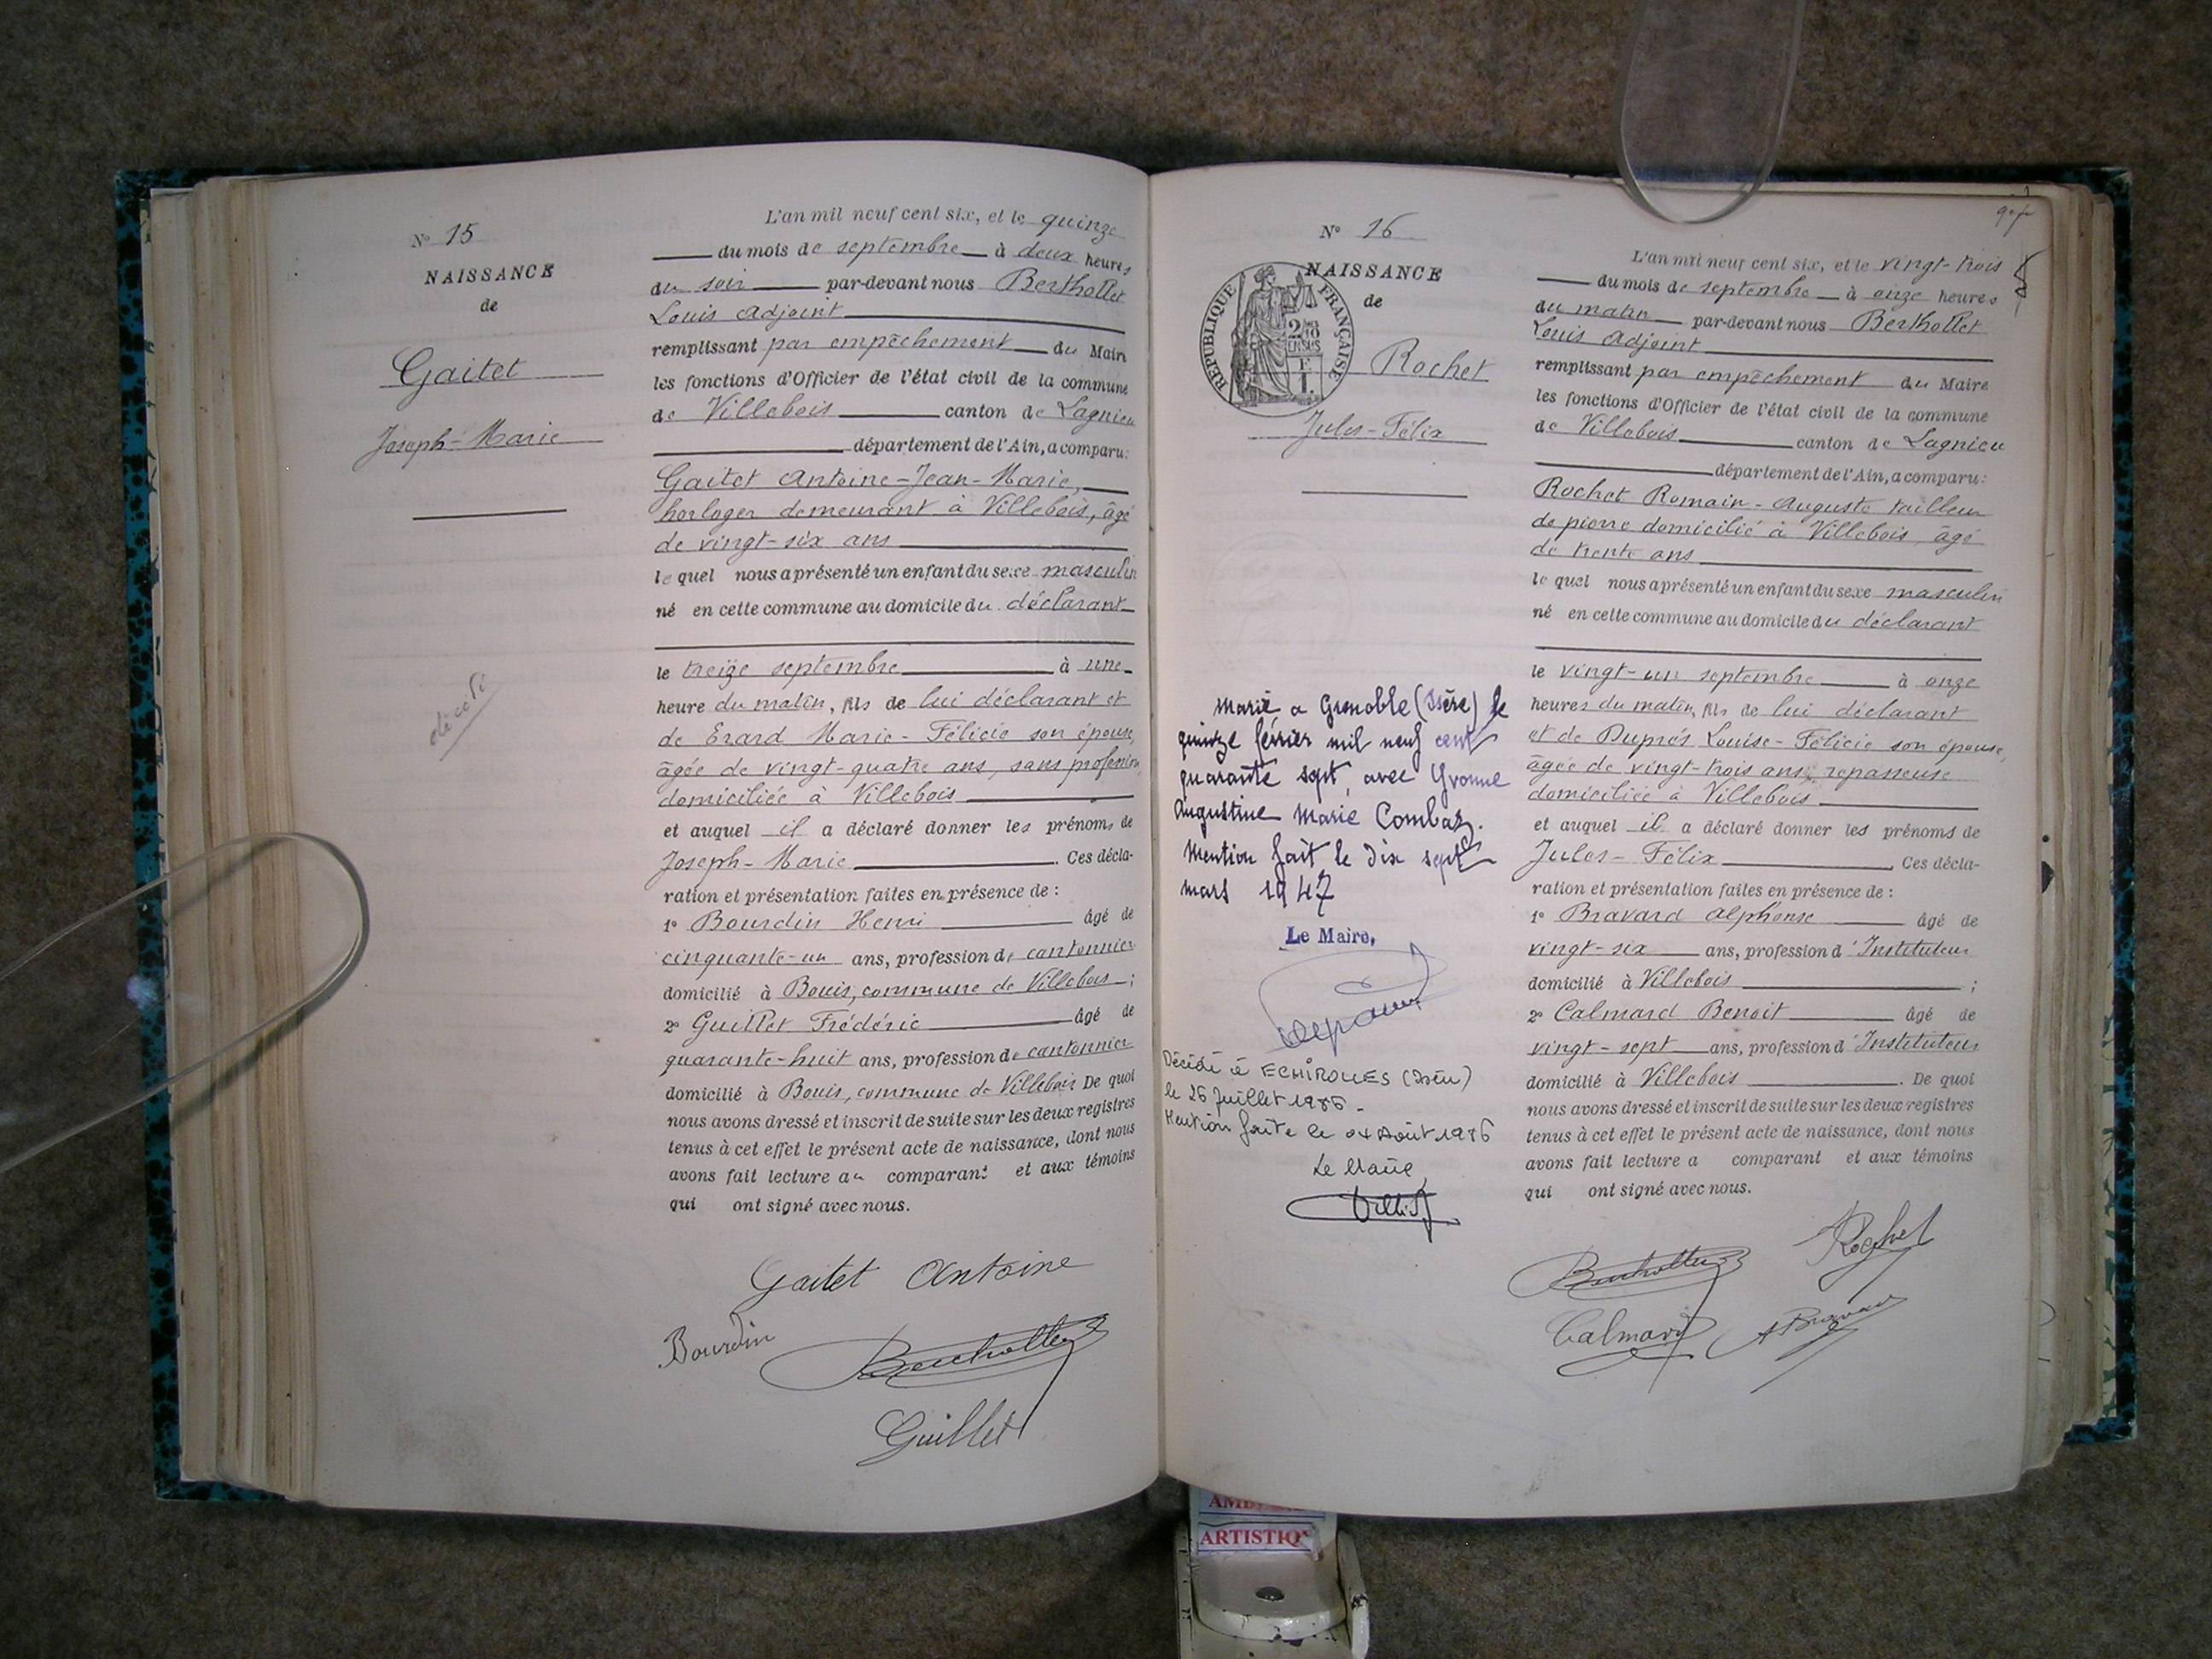 N° 15
NAISSANCE
de
Gaitet
Joseph-Marie
décédé
L'an mil neuf cent six, et le quinze
du mois de septembre à deux heures
du soir par-devant nous Berthollet
Louis Adjoint
remplissant par empêchement du Maire
les fonctions d'Officier de l'état civil de la commune
de Villebois canton de Lagnieu
département de l'Ain, a comparu:
Gaitet Antoine-Jean-Marie,
horloger demeurant à Villebois, âgé
de vingt-six ans
lequel nous a présenté un enfant du sexe masculin
né en cette commune au domicile du déclarant
le treize septembre à une
heure du matin, fils de lui déclarant et
de Erard Marie-Félicie son épouse,
âgée de vingt-quatre ans, sans profession,
domiciliée à Villebois
et auquel il a déclaré donner les prénoms de
Joseph-Marie. Ces décla-
ration et présentation faites en présence de :
1° Bourdin Henri âgé de
cinquante-un ans, profession de cantonnier
domicilié à Bouis, commune de Villebois ;
2° Guillet Frédéric âgé de
quarante-huit ans, profession de cantonnier
domicilié à Bouis, commune de Villebois De quoi
nous avons dressé et inscrit de suite sur les deux registres
tenus à cet effet le présent acte de naissance, dont nous
avons fait lecture au comparant et aux témoins
qui ont signé avec nous.
Gaitet Antoine
Bourdin
Berthollet
Guillet
N° 16
NAISSANCE
de
RÉPUBLIQUE FRANÇAISE
Rochet
Jules-Félix
Marié a Grenoble (Isère) le
quinze février mil neuf cent
quarante sept, avec Yvonne
Augustine Marie Combaz.
Mention fait le dix sept
mars 1947
Le Maire,
Décédé à ECHIROLLES (Isère)
le 26 Juillet 1986 -
Mention faite le 04 Août 1986
Le Maire
L'an mil neuf cent six, et le vingt-trois
du mois de septembre à onze heures
du matin par-devant nous Berthollet
Louis Adjoint
remplissant par empêchement du Maire
les fonctions d'Officier de l'état civil de la commune
de Villebois canton de Lagnieu
département de l'Ain, a comparu:
Rochet Romain-Auguste tailleur
de pierre domicilié à Villebois, âgé
de trente ans
lequel nous a présenté un enfant du sexe masculin
né en cette commune au domicile du déclarant
le vingt-un septembre à onze
heures du matin, fils de lui déclarant
et de Duprés Louise-Félicie son épouse,
âgée de vingt-trois ans, repasseuse
domiciliée à Villebois
et auquel il a déclaré donner les prénoms de
Jules-Félix Ces décla-
ration et présentation faites en présence de :
1° Bravard Alphonse âgé de
vingt-six ans, profession d'Instituteur
domicilié à Villebois ;
2° Calmard Benoit âgé de
vingt-sept ans, profession d'Instituteur
domicilié à Villebois. De quoi
nous avons dressé et inscrit de suite sur les deux registres
tenus à cet effet le présent acte de naissance, dont nous
avons fait lecture a comparant et aux témoins
qui ont signé avec nous.
Rochet
Berthollet
Calmard
A Bravard
ARTISTIQ